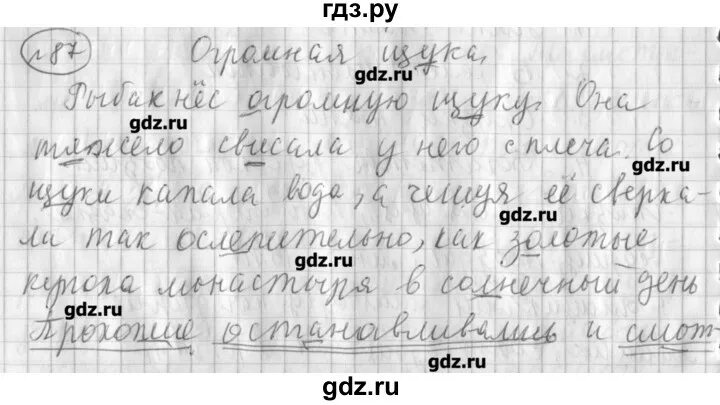 гдз.ру
№87 Огромная щука.
gdz.ru
Рыбак нёс огромную щуку. Она
gdz.ru
тяжело свисала у него с плеча. Со
gdz.ru
щуки капала вода, а чешуя её сверка-
gdz.ru
ли так ослепительно, как золотые
gdz.ru
купола монастыря в солнечный день
gdz.ru
Прохожие останавливались и смот
gdz.ru
gdz.ru